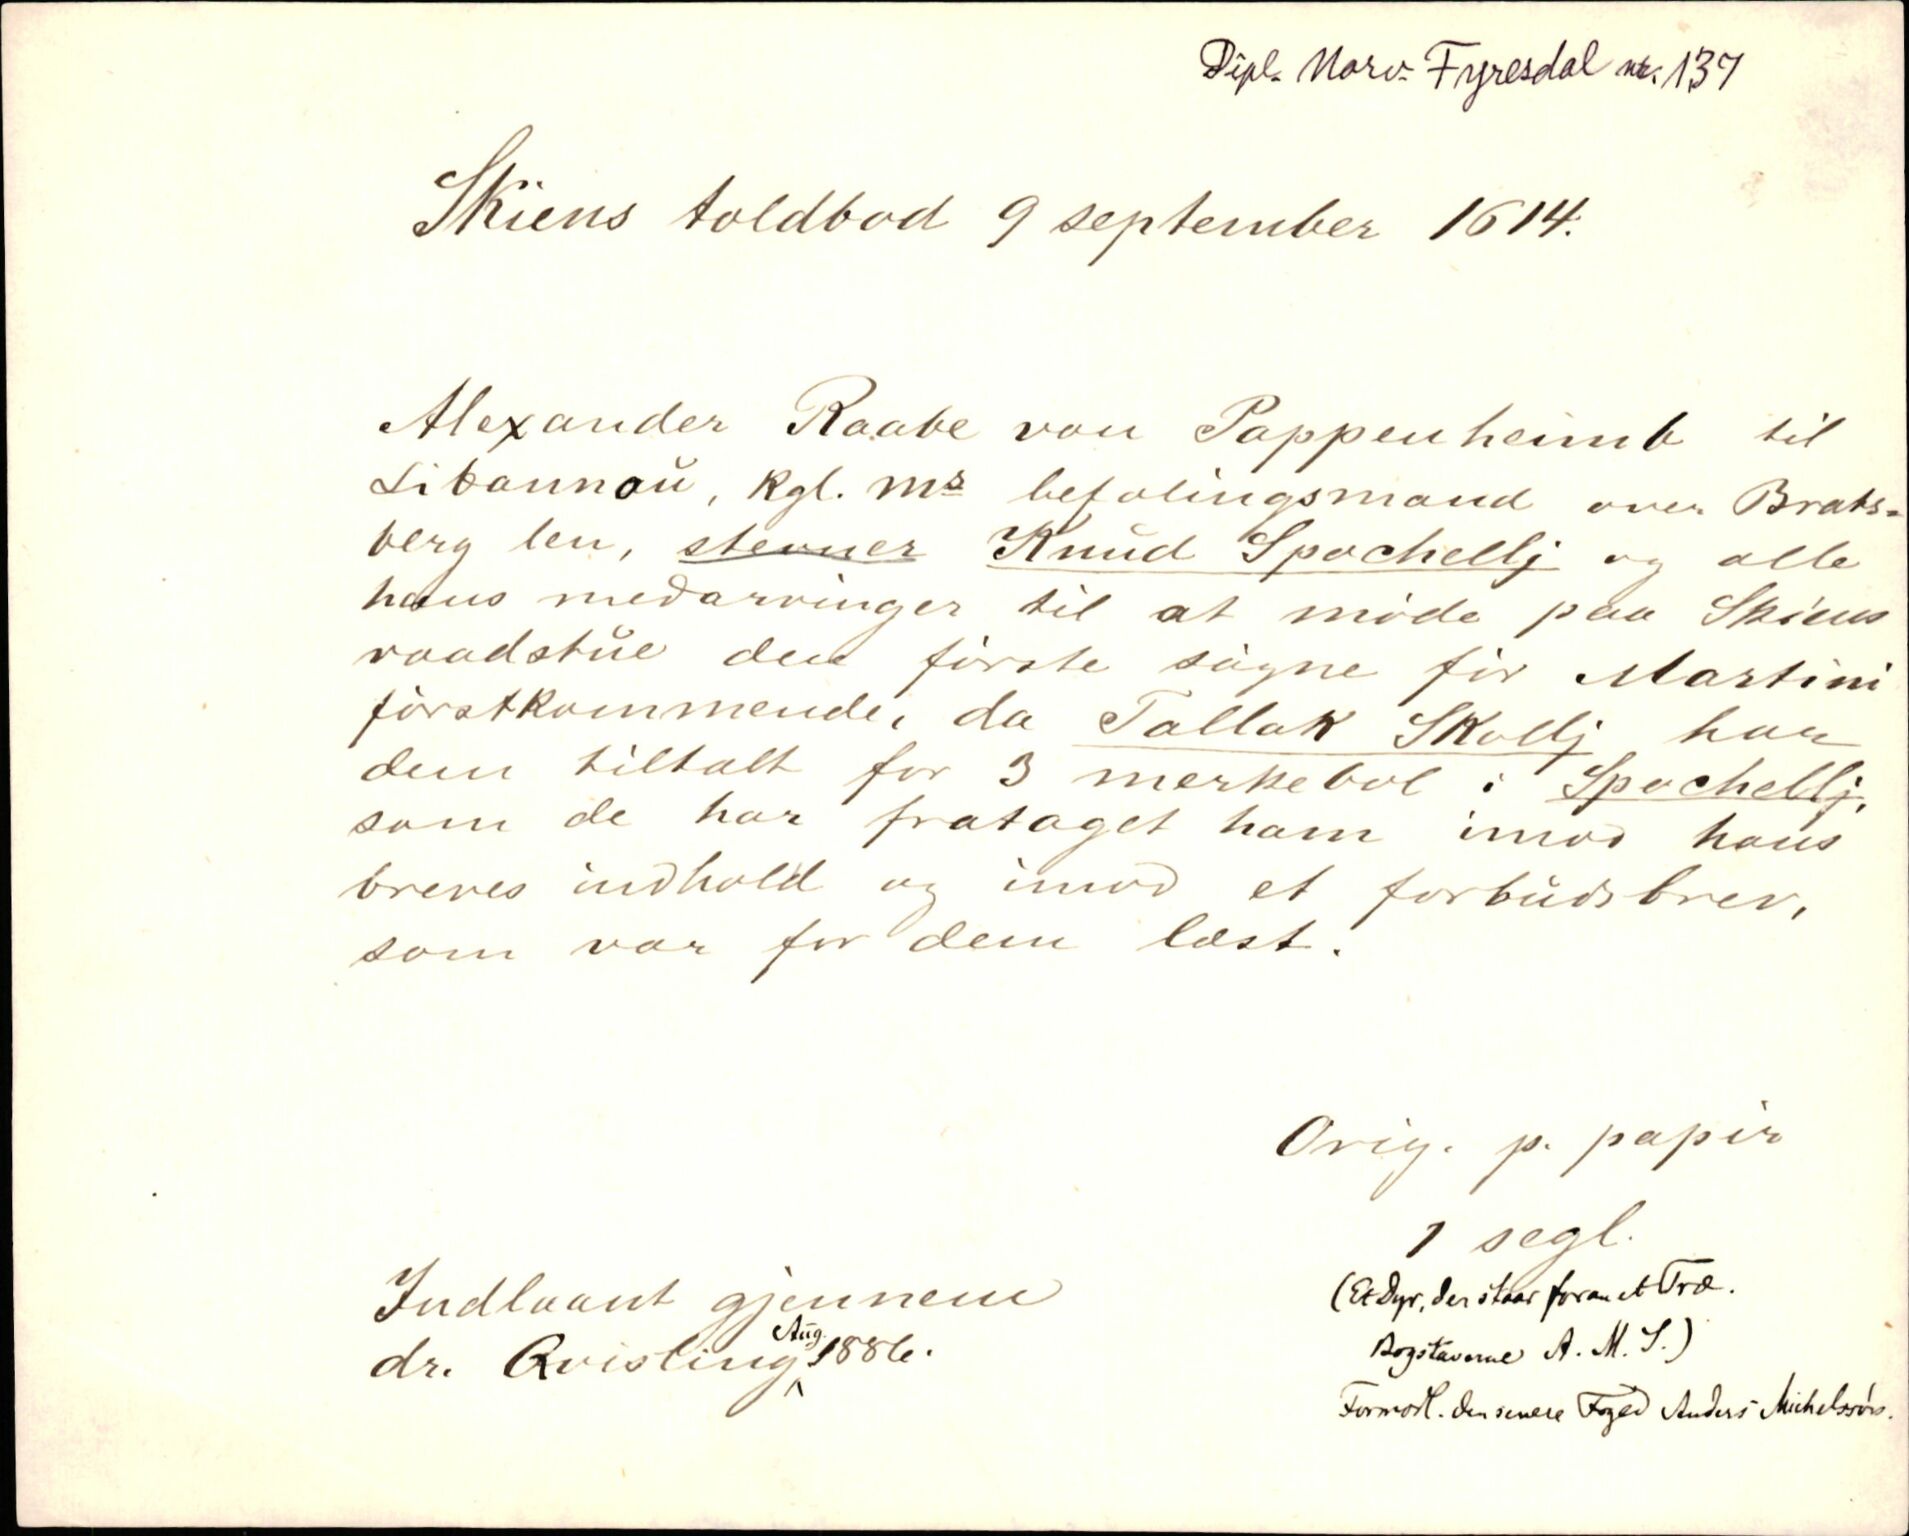 Dipl. Norv. Fyresdal nr. 137
Skiens toldbod 9 september 1614.
Alexander Raabe von Pappenheimb til
Libannau, kgl. Ms befalingsmand over Brats-
berg len, stevner Knud Spochellj og alle
hans medarvinger til at møde paa Skiens
raadstue den første søgne før Martini
førstkommende, da Tallak Skollj har
dem tiltalt for 3 merkebol i Spochellj,
som de har frataget ham imod hans
breves indhold og imod et forbudsbrev,
som var for dem læst.
Orig. p. papir
1 segl.
(Et Dyr, der staar foran et Træ.
Bogstaverne A. M. S.)
Formodl. den senere Foged Anders Michelssøns.
Indlaant gjennem
dr. Qvisling Aug. 1886.